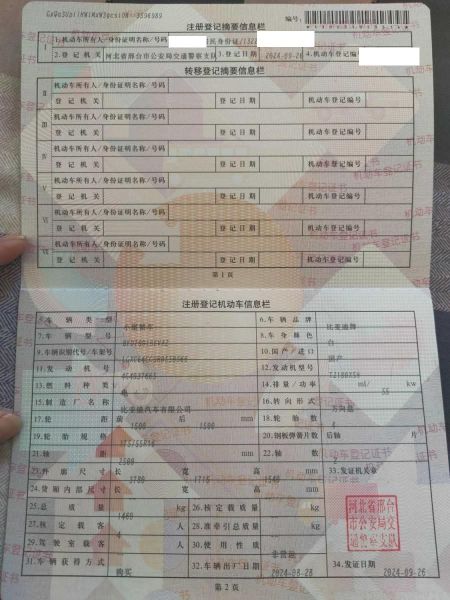 注册登记摘要信息栏
编号:
Ⅰ
1.机动车所有人/身份证明名称/号码
2.登记机关 河北省邢台市公安局交通警察支队 3.登记日期 2024-09-26 4.机动车登记编号
转移登记摘要信息栏
Ⅱ 机动车所有人/身份证明名称/号码
登记机关 登记日期 机动车登记编号
Ⅲ 机动车所有人/身份证明名称/号码
登记机关 登记日期 机动车登记编号
Ⅳ 机动车所有人/身份证明名称/号码
登记机关 登记日期 机动车登记编号
Ⅴ 机动车所有人/身份证明名称/号码
登记机关 登记日期 机动车登记编号
Ⅵ 机动车所有人/身份证明名称/号码
登记机关 登记日期 机动车登记编号
Ⅶ 机动车所有人/身份证明名称/号码
登记机关 登记日期 机动车登记编号
第1页
注册登记机动车信息栏
5.车辆类型 小型轿车 6.车辆品牌 比亚迪牌
7.车辆型号 8.车身颜色 白
9.车辆识别代号/车架号 10.国产/进口 国产
11.发动机号 12.发动机型号 TZ180XSH
13.燃料种类 电 14.排量/功率 ml/ 55 kw
15.制造厂名称 比亚迪汽车有限公司 16.转向形式 方向盘
17.轮距 前 1500 后 1500 mm 18.轮胎数 4
19.轮胎规格 175/55R16 20.钢板弹簧片数 后轴 片
21.轴距 2500 mm 22.轴数 2
23.外廓尺寸 长 3780 宽 1715 高 1540 mm 33.发证机关章
24.货厢内部尺寸 长 宽 高 mm
25.总质量 1460 kg 26.核定载质量 kg
27.核定载客 4 人 28.准牵引总质量 kg
29.驾驶室载客 人 30.使用性质 非营运
31.车辆获得方式 购买 32.车辆出厂日期 2024-08-28 34.发证日期 2024-09-26
河北省邢台
市公安局交
通警察支队
第2页